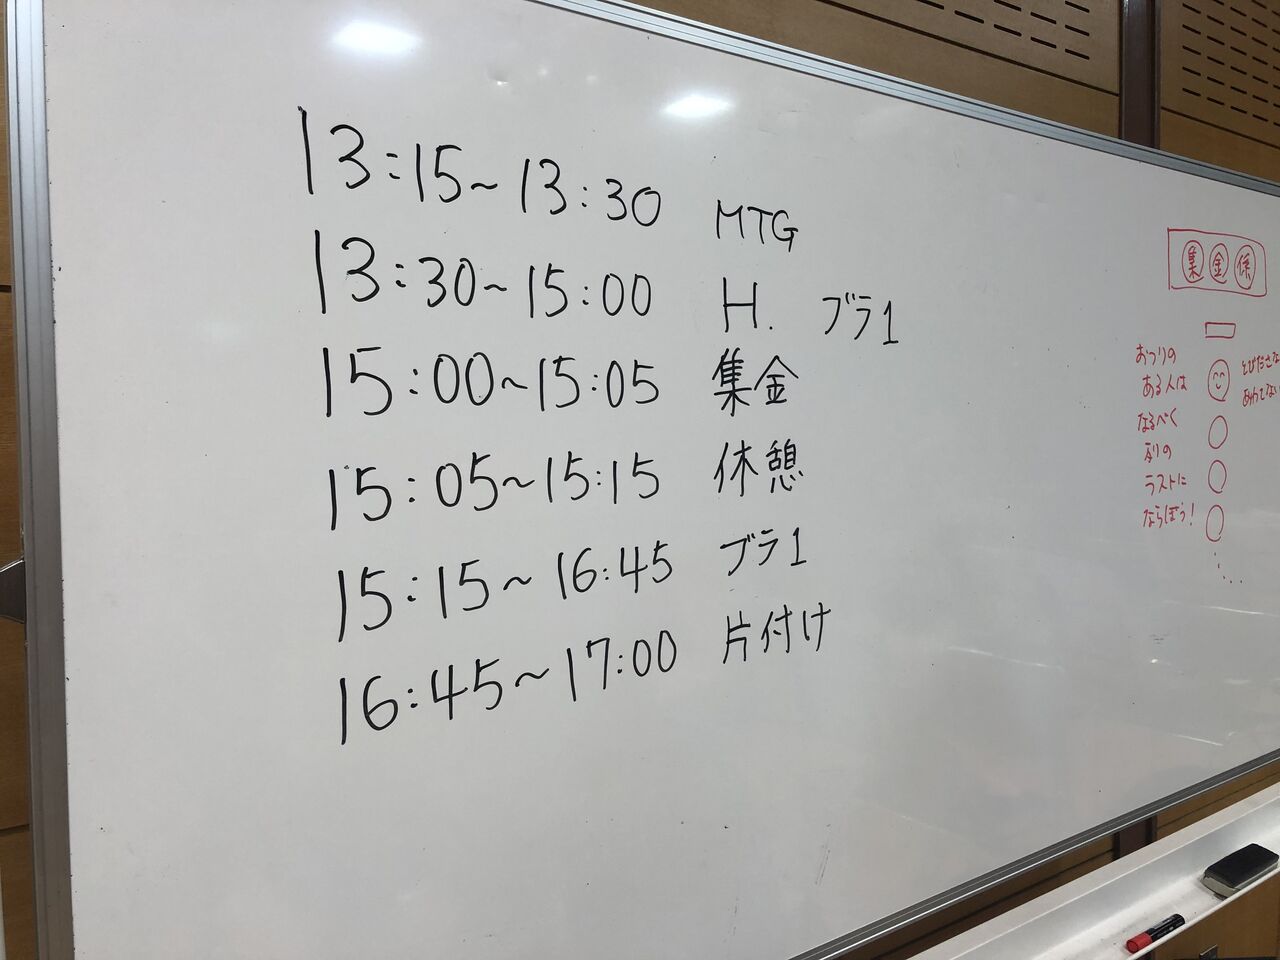 13:15~13:30 MTG
13:30~15:00 H. ブラ1
15:00~15:05 集金
15:05~15:15 休憩
15:15~16:45 ブラ1
16:45~17:00 片付け
集金係
おつりの
ある人は
なるべく
列の
ラストに
ならぼう!
とびださな
あわてない